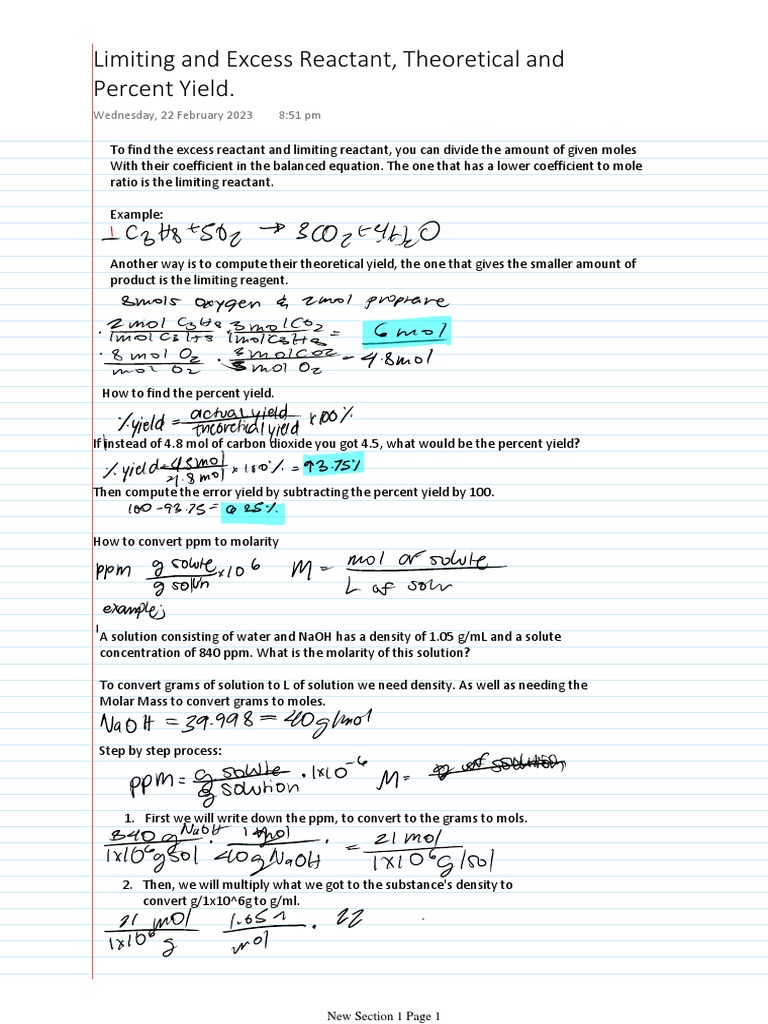 Limiting and Excess Reactant, Theoretical and
Percent Yield.
Wednesday, 22 February 2023 8:51 pm
To find the excess reactant and limiting reactant, you can divide the amount of given moles
With their coefficient in the balanced equation. The one that has a lower coefficient to mole
ratio is the limiting reactant.
Example:
1 C3H8 + 5O2 → 3CO2 + 4H2O
Another way is to compute their theoretical yield, the one that gives the smaller amount of
product is the limiting reagent.
8mols oxygen & 2mol proprane
· 2 mol C3H8 / 1mol C3H8 · 3 mol CO2 / 1mol C3H8 = 6 mol
· 8 mol O2 / mol O2 · 3molCO2 / 5 mol O2 = 4.8mol
How to find the percent yield.
% yield = actual yield / theoretical yield × 100%
If instead of 4.8 mol of carbon dioxide you got 4.5, what would be the percent yield?
% yield = 4.5mol / 4.8 mol × 100% = 93.75%
Then compute the error yield by subtracting the percent yield by 100.
100 - 93.75 = 6.25%
How to convert ppm to molarity
ppm g solute / g soln × 10^6 M = mol of solute / L of soln
example;
1
A solution consisting of water and NaOH has a density of 1.05 g/mL and a solute
concentration of 840 ppm. What is the molarity of this solution?
To convert grams of solution to L of solution we need density. As well as needing the
Molar Mass to convert grams to moles.
NaOH = 39.998 = 40g/mol
Step by step process:
ppm = g solute / g solution · 1x10^-6 M =
1. First we will write down the ppm, to convert to the grams to mols.
840 g NaOH / 1x10^6 g sol · 1 mol / 40g NaOH · = 21 mol / 1x10^6 g/sol
2. Then, we will multiply what we got to the substance's density to
convert g/1x10^6g to g/ml.
21 mol / 1x10^6 g 1.05 / mol · 22
New Section 1 Page 1